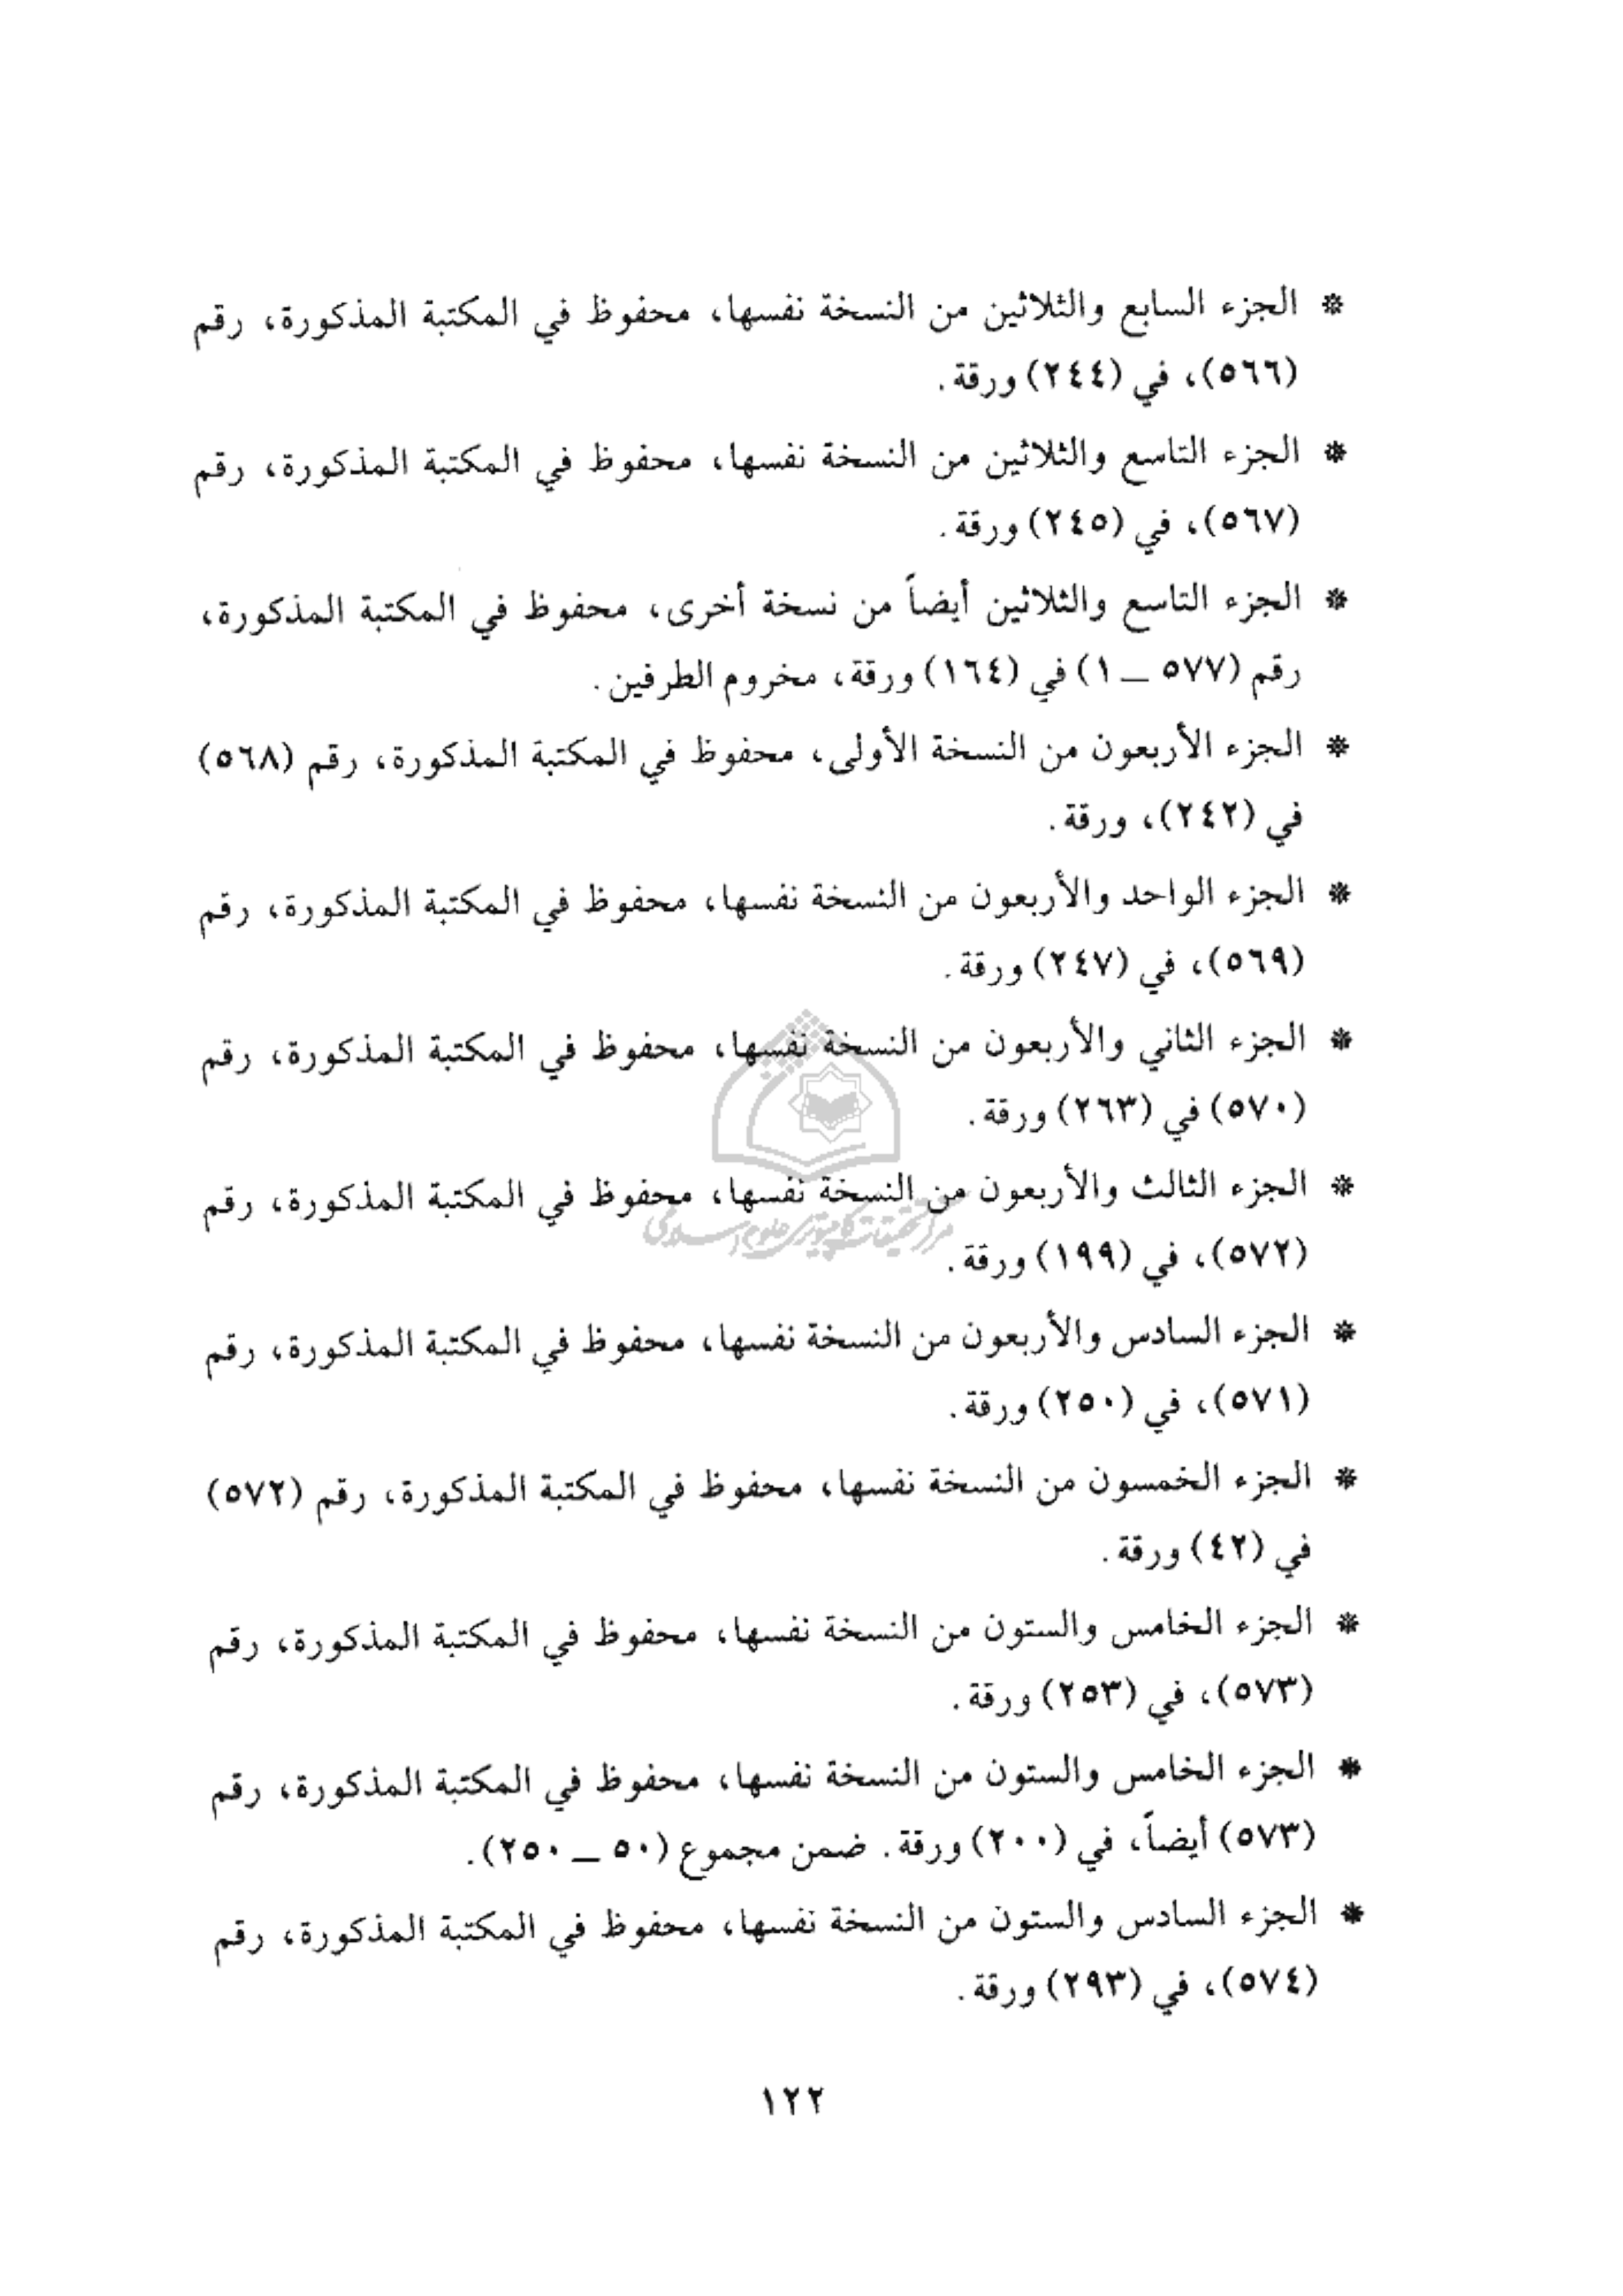 * الجزء السابع والثلاثين من النسخة نفسها، محفوظ في المكتبة المذكورة، رقم
(٥٦٦)، في (٢٤٤) ورقة.
* الجزء التاسع والثلاثين من النسخة نفسها، محفوظ في المكتبة المذكورة، رقم
(٥٦٧)، في (٢٤٥) ورقة.
* الجزء التاسع والثلاثين أيضاً من نسخة أخرى، محفوظ في المكتبة المذكورة،
رقم (٥٧٧ ـ ١) في (١٦٤) ورقة، مخروم الطرفين.
* الجزء الأربعون من النسخة الأولى، محفوظ في المكتبة المذكورة، رقم (٥٦٨)
في (٢٤٢)، ورقة.
* الجزء الواحد والأربعون من النسخة نفسها، محفوظ في المكتبة المذكورة، رقم
(٥٦٩)، في (٢٤٧) ورقة.
* الجزء الثاني والأربعون من النسخة نفسها، محفوظ في المكتبة المذكورة، رقم
(٥٧٠) في (٢٦٣) ورقة.
* الجزء الثالث والأربعون من النسخة نفسها، محفوظ في المكتبة المذكورة، رقم
مركز تحقيقات كامپيوتری علوم اسلامی
(٥٧٢)، في (١٩٩) ورقة.
* الجزء السادس والأربعون من النسخة نفسها، محفوظ في المكتبة المذكورة، رقم
(٥٧١)، في (٢٥٠) ورقة.
* الجزء الخمسون من النسخة نفسها، محفوظ في المكتبة المذكورة، رقم (٥٧٢)
في (٤٢) ورقة.
* الجزء الخامس والستون من النسخة نفسها، محفوظ في المكتبة المذكورة، رقم
(٥٧٣)، في (٢٥٣) ورقة.
* الجزء الخامس والستون من النسخة نفسها، محفوظ في المكتبة المذكورة، رقم
(٥٧٣) أيضاً، في (٢٠٠) ورقة. ضمن مجموع (٥٠ ـ ٢٥٠).
* الجزء السادس والستون من النسخة نفسها، محفوظ في المكتبة المذكورة، رقم
(٥٧٤)، في (٢٩٣) ورقة.
١٢٢